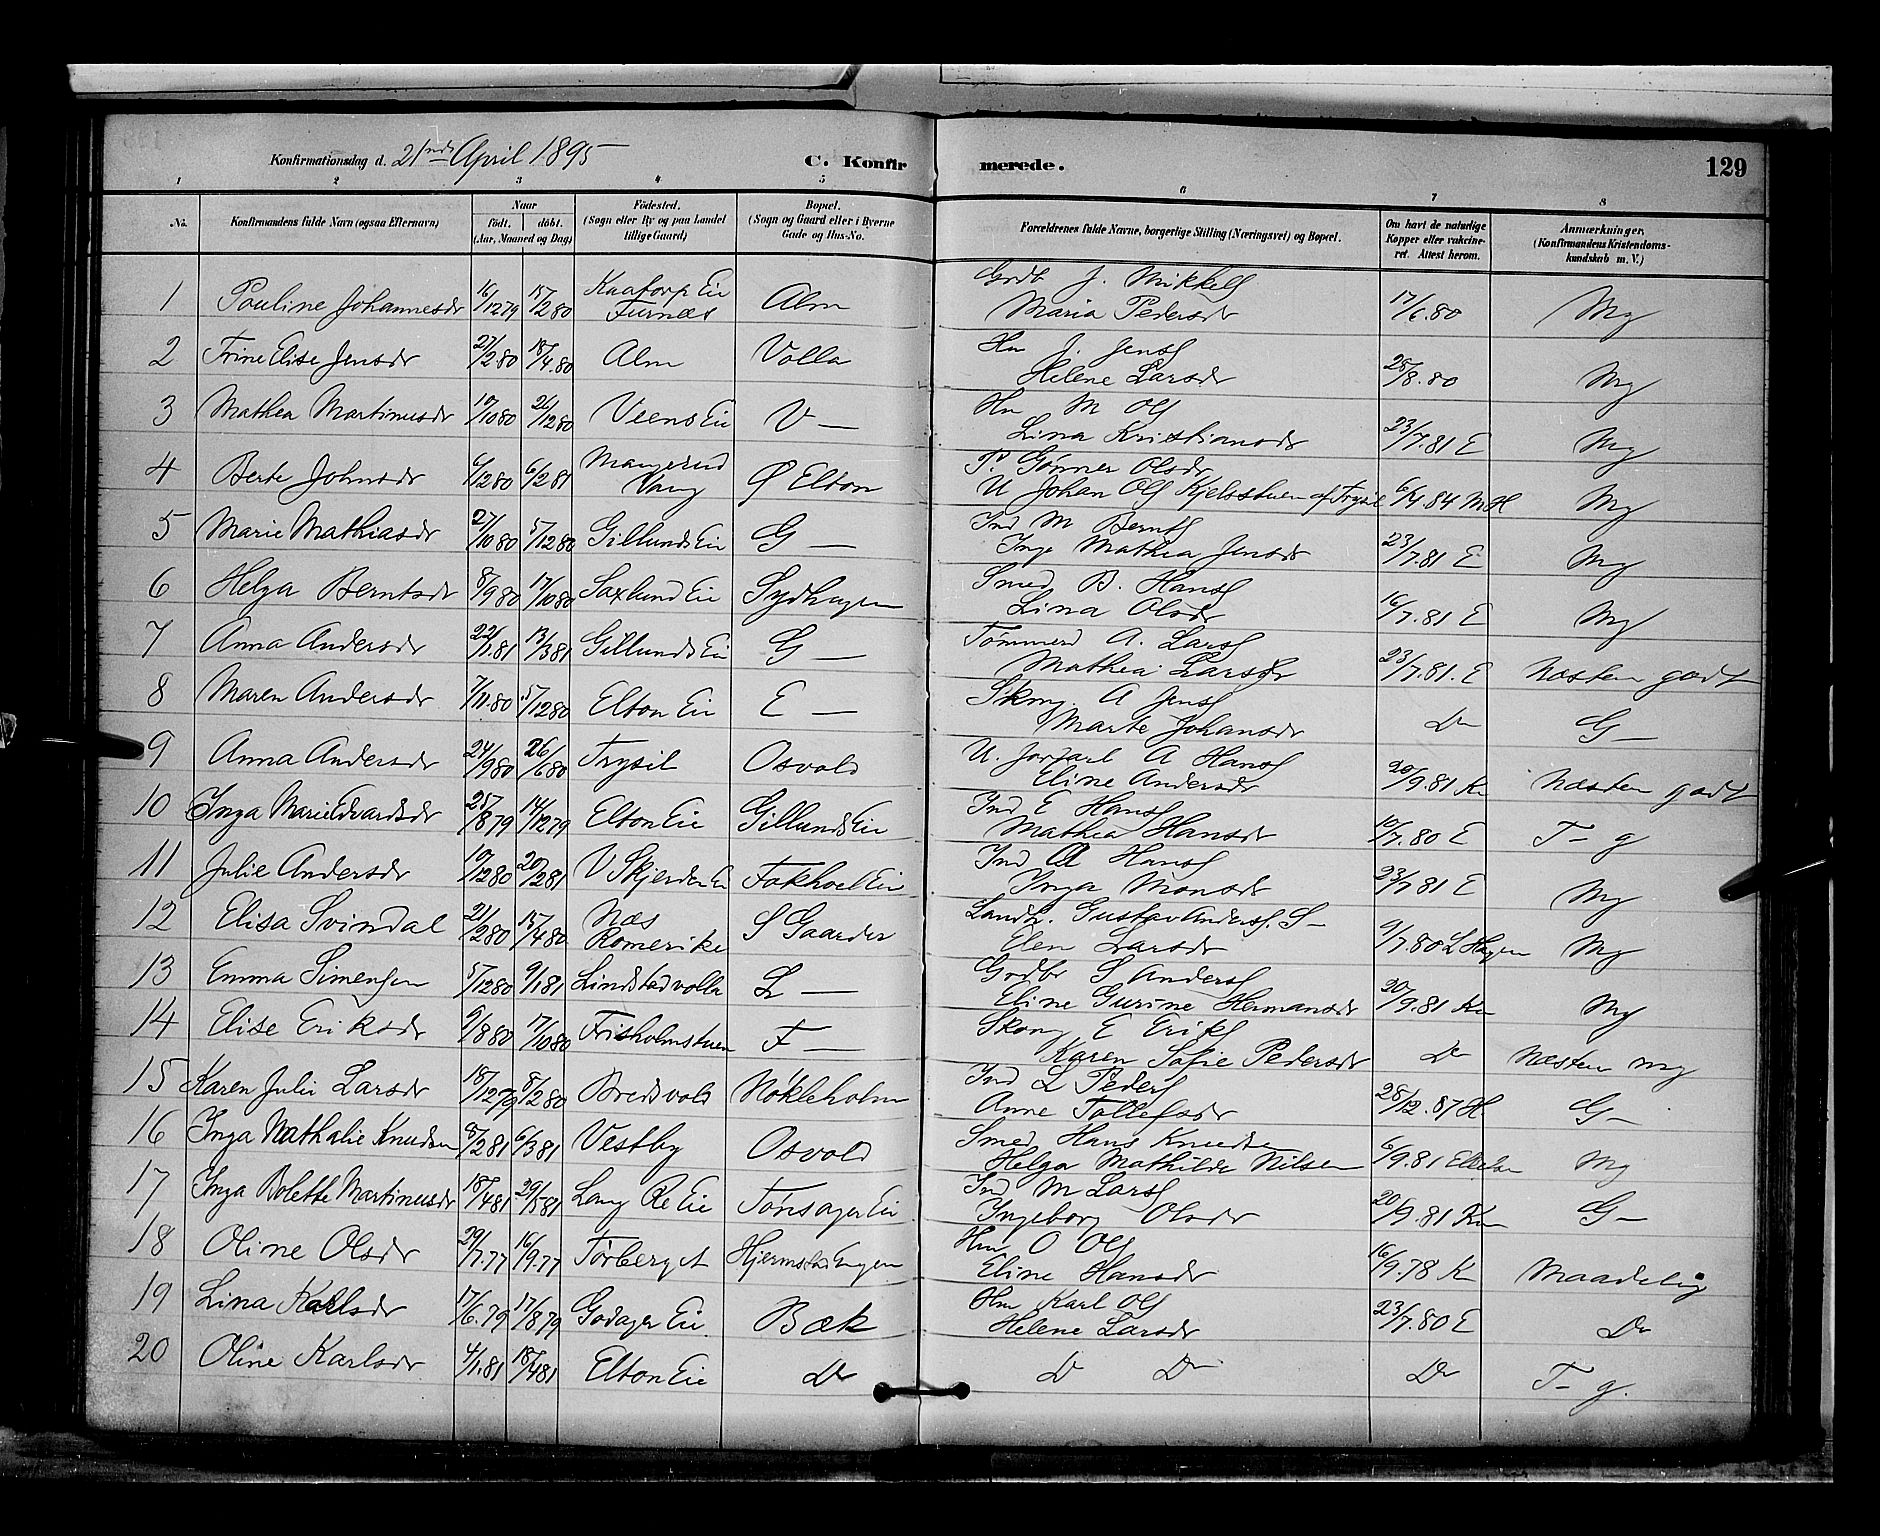 Konfirmationsdag d. 21nde April 1895
C. Konfirmerede.
129
1 2 3 4 5 6 7 8
No.
Konfirmandens fulde Navn (ogsaa Efternavn)
Naar
födt. döbt.
(Aar, Maaned og Dag)
Födested.
(Sogn eller By og paa Landet
tillige Gaard)
Bopæl.
(Sogn og Gaard eller i Byerne
Gade og Hus-No.
Forældrenes fulde Navne, borgerlige Stilling (Næringsvei) og Bopæl.
Om havt de naturlige
Kopper eller vakcine-
ret. Attest herom.
Anmærkninger.
(Konfirmandens Kristendoms-
kundskab m. V.)
1 Pauline Johannesdr 16/12 79 15/2 80 Kaatorp Eie Furnæs Alm Grdb J. Mikkels Maria Pedersdr 17/6.80 Mg
2 Trine Elise Jensdr 21/2 80 18/4.80 Alm Volla Hm J. Jens Helene Larsdr 25/8.80 Mg
3 Mathea Martinusdr 17/10 80 26/12 80 Veens Eie V — Hm M Ols Lina Kristiansdr 23/7.81 E Mg
4 Berte Johnsdr 6/12 80 6/2 81 Vang Ø Elton P. Gunner Olsdr U Johan Ols Kjelsstuen af Trysil 6/4.84 MH Mg
5 Marie Mathiasdr 27/10 80 5/12 80 Gillunds Eie G — Ind M Bernts Inge Mathea Jensdr 23/7.81 E Mg
6 Helga Berntsdr 8/9 80 17/10 80 Saxlund Eie Sydhagen Smed B. Hans Lina Olsdr 16/7.81 E Mg
7 Anna Andersdr 22/1 81 13/3 81 Gillunds Eie G — Tømmerd A. Lars Mathea Larsdr 23/7.81. E Næsten godt
8 Maren Andersdr 7/11.80 5/12 80 Elton Eie E — Skomg. A Jens Marte Johansdr Do G —
9 Anna Andersdr 24/9 80 26/6 80 Trysil Osvold U. Jorfarl A Hans Eline Andersdr 20/9.81 Kn Næsten godt
10 Inga Marie Edvardsdr 25/8 79 14/12 79 Elton Eie Gillunds Eie Ind E Hans Mathea Hansdr 10/7.80 E T- g
11 Julie Andersdr 10/12 80 20/2 81 V Skjerden Ei Fokhoel Eie Ind A Hans Inga Monsdr 23/7 81 E Mg
12 Elisa Svindal 21/2 80 15/4 80 Næs Romerike S Gaarder Landh. Gustav Anders. S- Elen Larsdr 9/7.80 L Hagen Mg
13 Emma Simensen 5/12 80 9/1 81 Lindstadvolla L — Grdbr S Anders Eline Gurine Hermansdr 20/9.81 Kn Mg
14 Elise Eriksdr 9/8 80 17/10 80 Frisholmstuen F — Skomg E Eriks Karen Sofie Pedersdr Do Næsten mg
15 Karen Julie Larsdr 18/12 79 8/2 80 Bredsvold Nökleholm Ind L Peders Anne Tollefsdr 28/12.87 H G —
16 Inga Nathalie Knudsen 8/2 81 6/3 81 Vestby Osvold Smed Hans Knudsen Helga Mathilde Nilsen 6/9.81 Mg
17 Inga Bolette Martinusdr 18/4 81 29/5 81 Lang Re Eie Tönsager Eie Ind M Lars Ingeborg Olsdr 20/9.81 Kn G —
18 Oline Olsdr 29/7.77 16/9.77 Törberget Hjermstad Engen Hm O Ols Eline Hansdr 16/9.78 Kn Maadelig
19 Lina Karlsdr 17/6.79 17/8 79 Godager Eie Bæk Hm Karl Ols Helene Larsdr 23/7.80 E Do
20 Oline Karlsdr 4/1.81 18/4 81 Elton Eie Do D Do Do T- g.